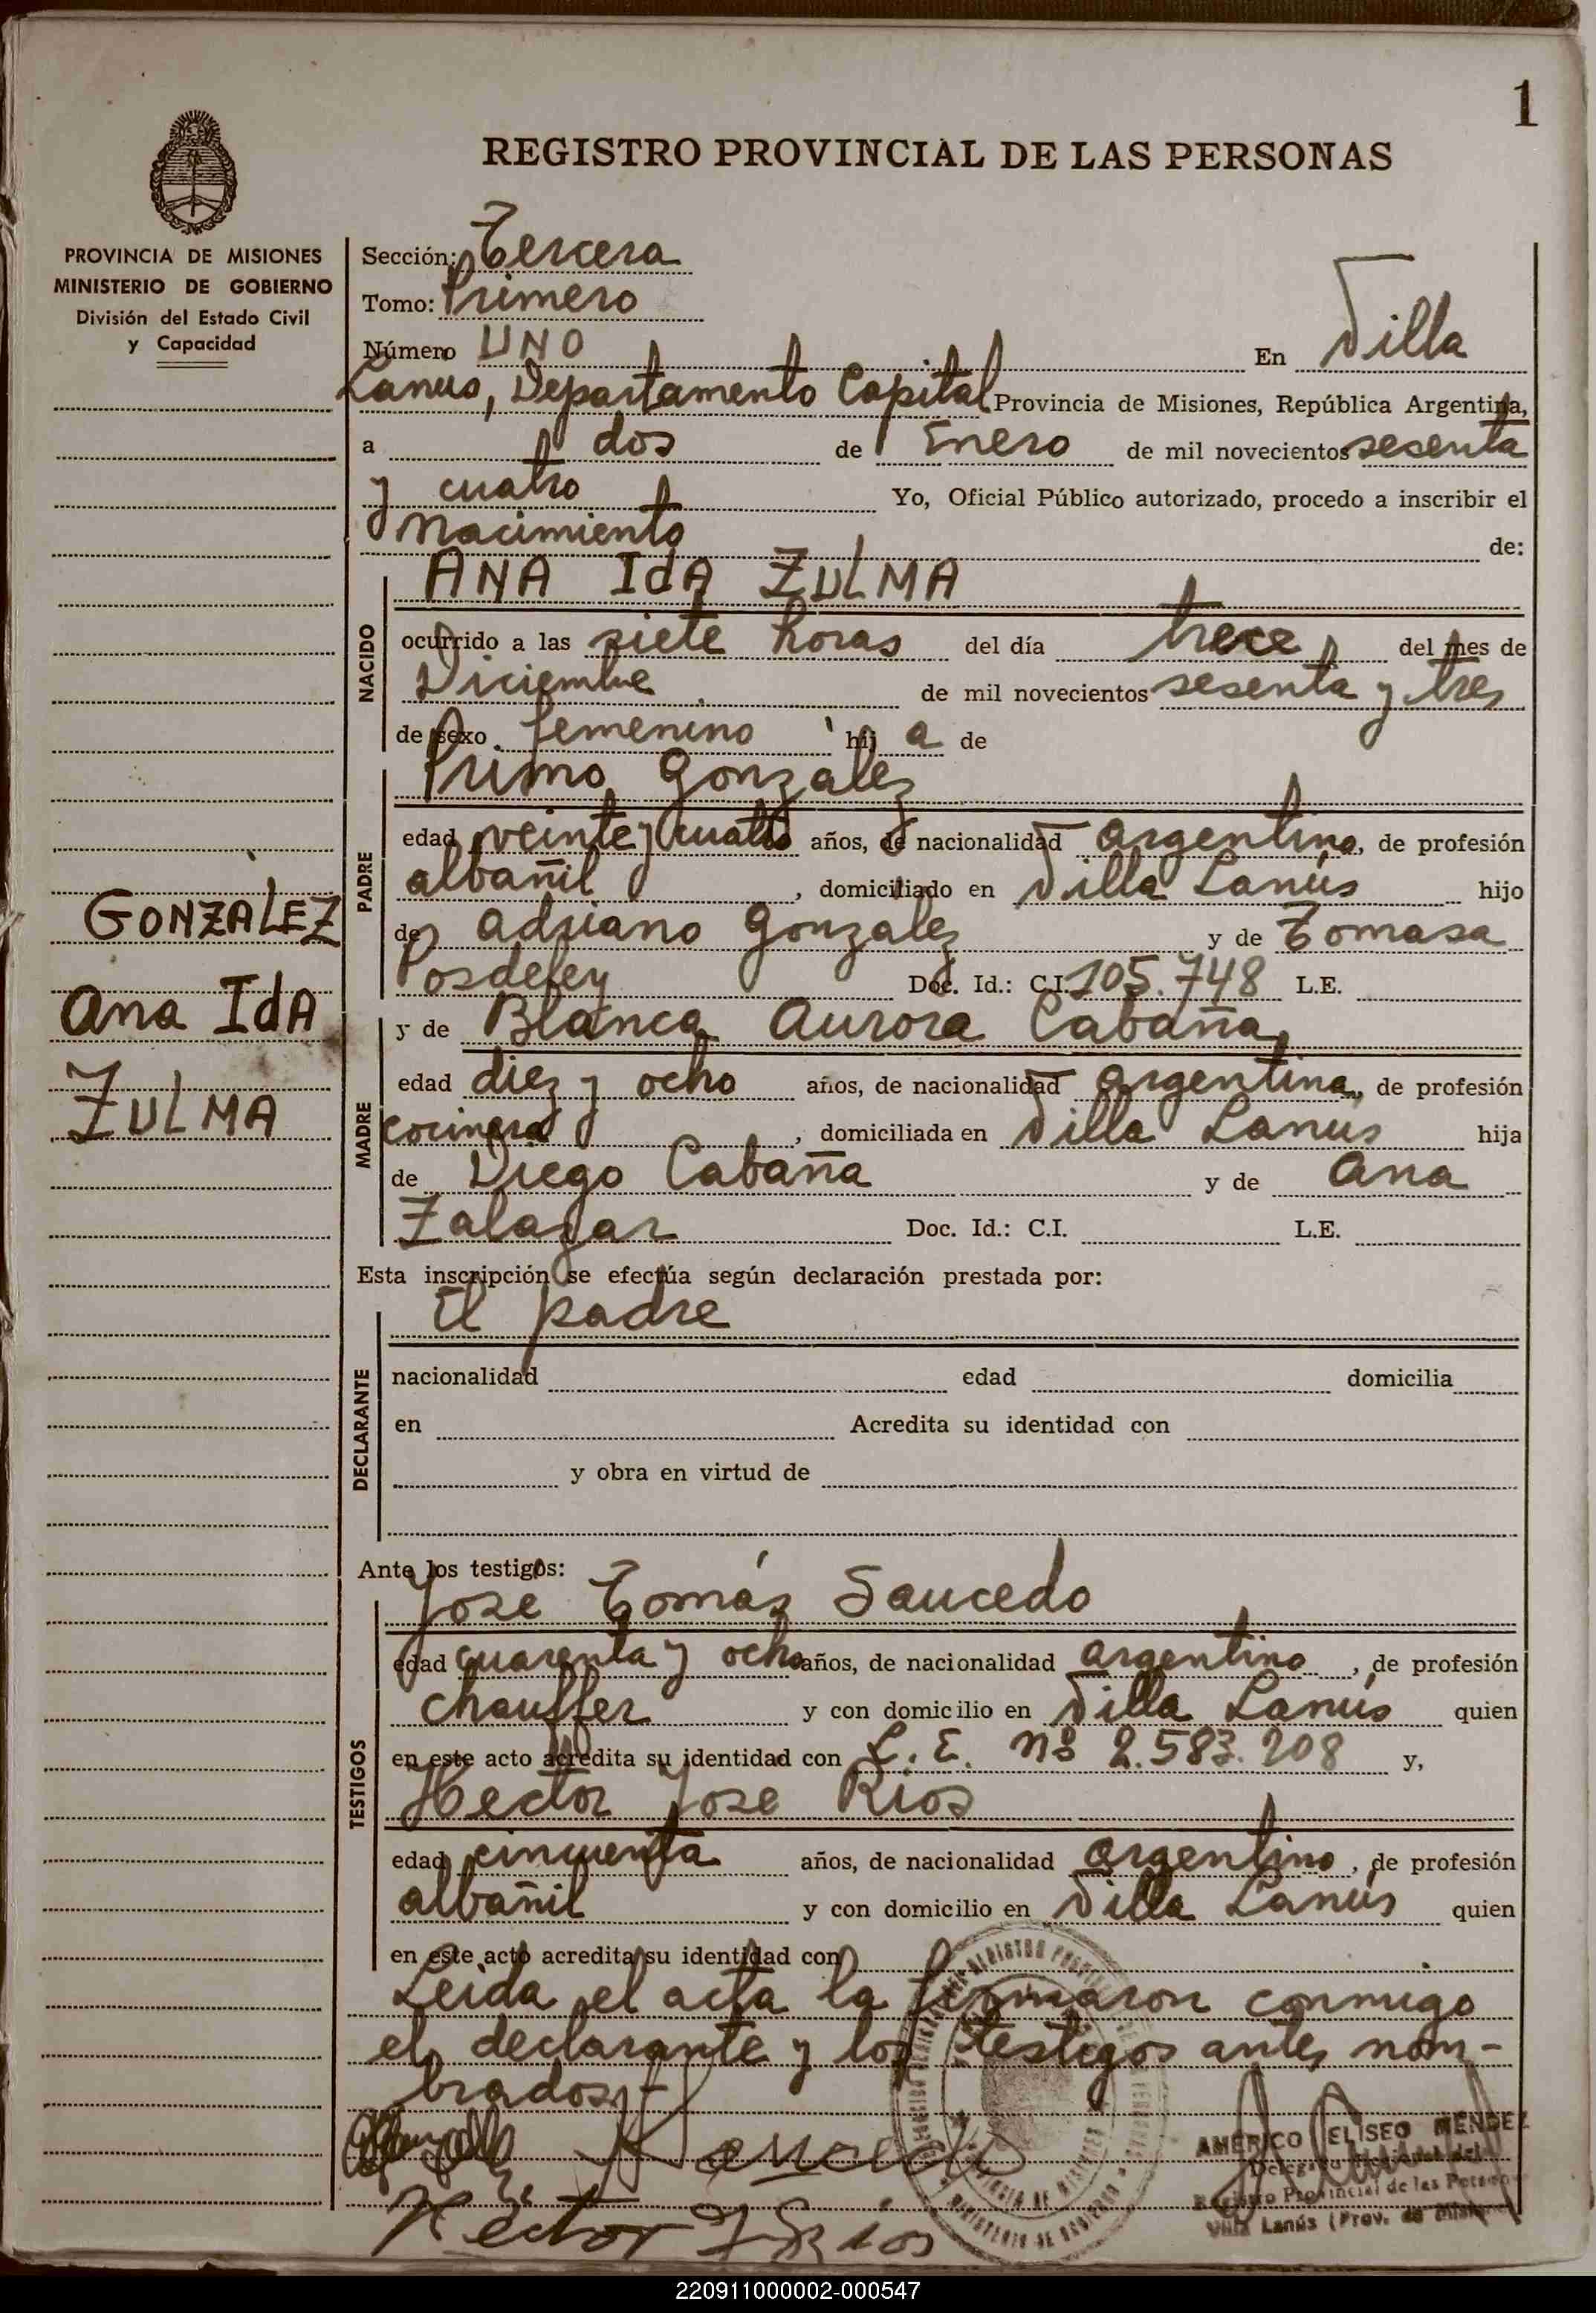 1
REGISTRO PROVINCIAL DE LAS PERSONAS
PROVINCIA DE MISIONES
MINISTERIO DE GOBIERNO
División del Estado Civil
y Capacidad
Sección: Tercera
Tomo: Primero
Número UNO En Villa
Lanus, Departamento Capital Provincia de Misiones, República Argentina,
a dos de Enero de mil novecientos sesenta
y cuatro Yo, Oficial Público autorizado, procedo a inscribir el
Nacimiento de:
ANA IdA ZULMA
NACIDO
ocurrido a las siete horas del día trece del mes de
Diciembre de mil novecientos sesenta y tres
de sexo femenino hij a de
Primo Gonzalez
PADRE
edad veinte y cuatro años, de nacionalidad argentina, de profesión
albañil, domiciliado en Villa Lanús hijo
de Adriano Gonzalez y de Tomasa
Posdeley Doc. Id.: C.I. 105.748 L.E.
GONZALEZ
Ana IdA
ZULMA
y de Blanca Aurora Cabaña
MADRE
edad diez y ocho años, de nacionalidad argentina, de profesión
cocinera, domiciliada en Villa Lanús hija
de Diego Cabaña y de Ana
Zalazar Doc. Id.: C.I. L.E.
Esta inscripción se efectúa según declaración prestada por:
El padre
DECLARANTE
nacionalidad edad domicilia
en Acredita su identidad con
y obra en virtud de
Ante los testigos:
José Tomás Saucedo
TESTIGOS
edad cuarenta y ocho años, de nacionalidad argentino, de profesión
chauffer y con domicilio en Villa Lanús quien
en este acto acredita su identidad con L.E. Nº 2.583.208 y,
Hector Jose Rios
edad cincuenta años, de nacionalidad argentino, de profesión
albañil y con domicilio en Villa Lanús quien
en este acto acredita su identidad con
Leida el acta la firmaron conmigo
el declarante y los testigos antes nom-
brados.-
Hector J Rios
AMERICO ELISEO MENDEZ
Registro Provincial de las Personas
Villa Lanús (Prov. de Misiones)
220911000002-000547